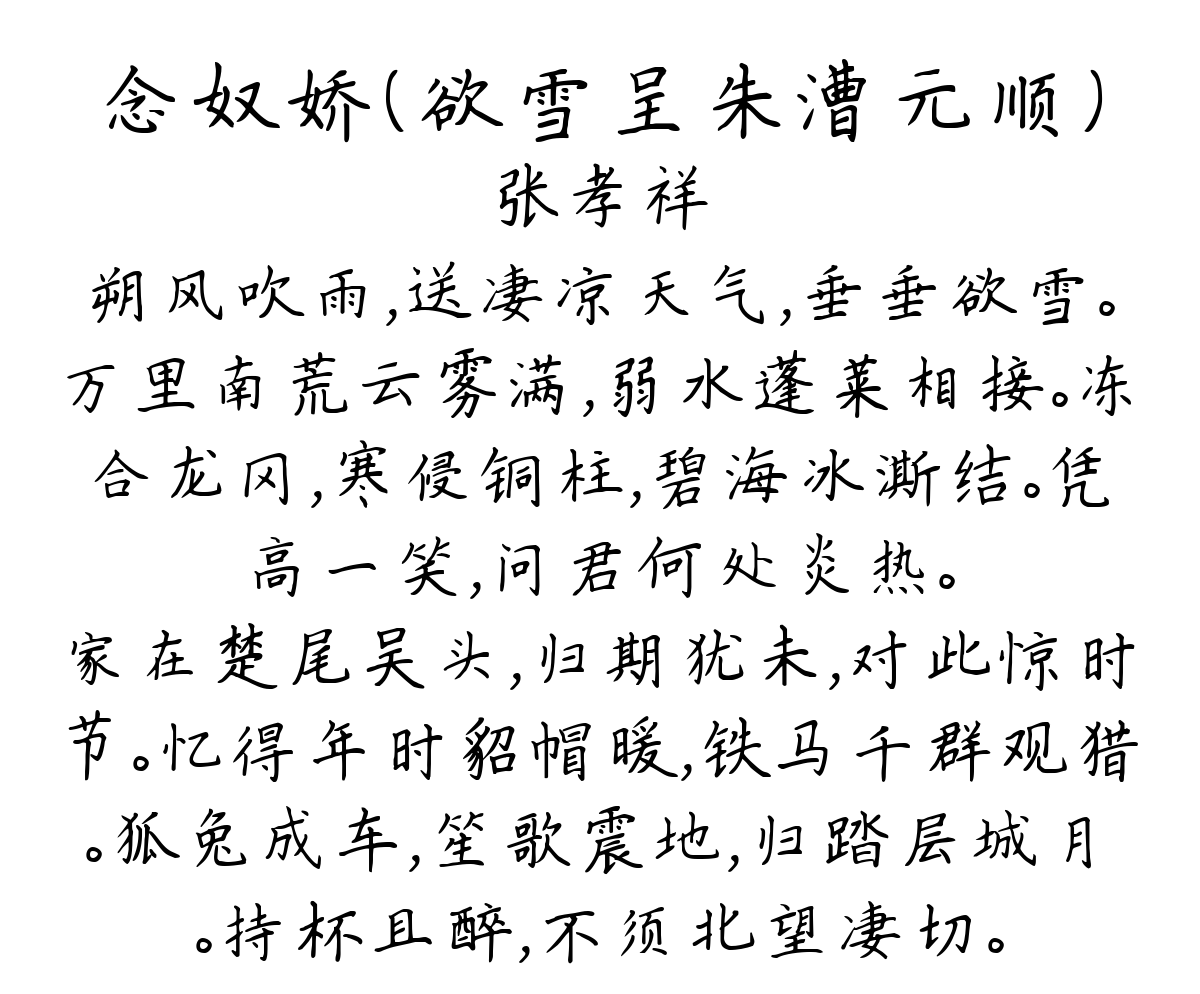 念奴娇(欲雪呈朱漕元顺)
张孝祥
朔风吹雨,送凄凉天气,垂垂欲雪。
万里南荒云雾满,弱水蓬莱相接。冻
合龙冈,寒侵铜柱,碧海冰澌结。凭
高一笑,问君何处炎热。
家在楚尾吴头,归期犹未,对此惊时
节。忆得年时貂帽暖,铁马千群观猎
。狐兔成车,笙歌震地,归踏层城月
。持杯且醉,不须北望凄切。